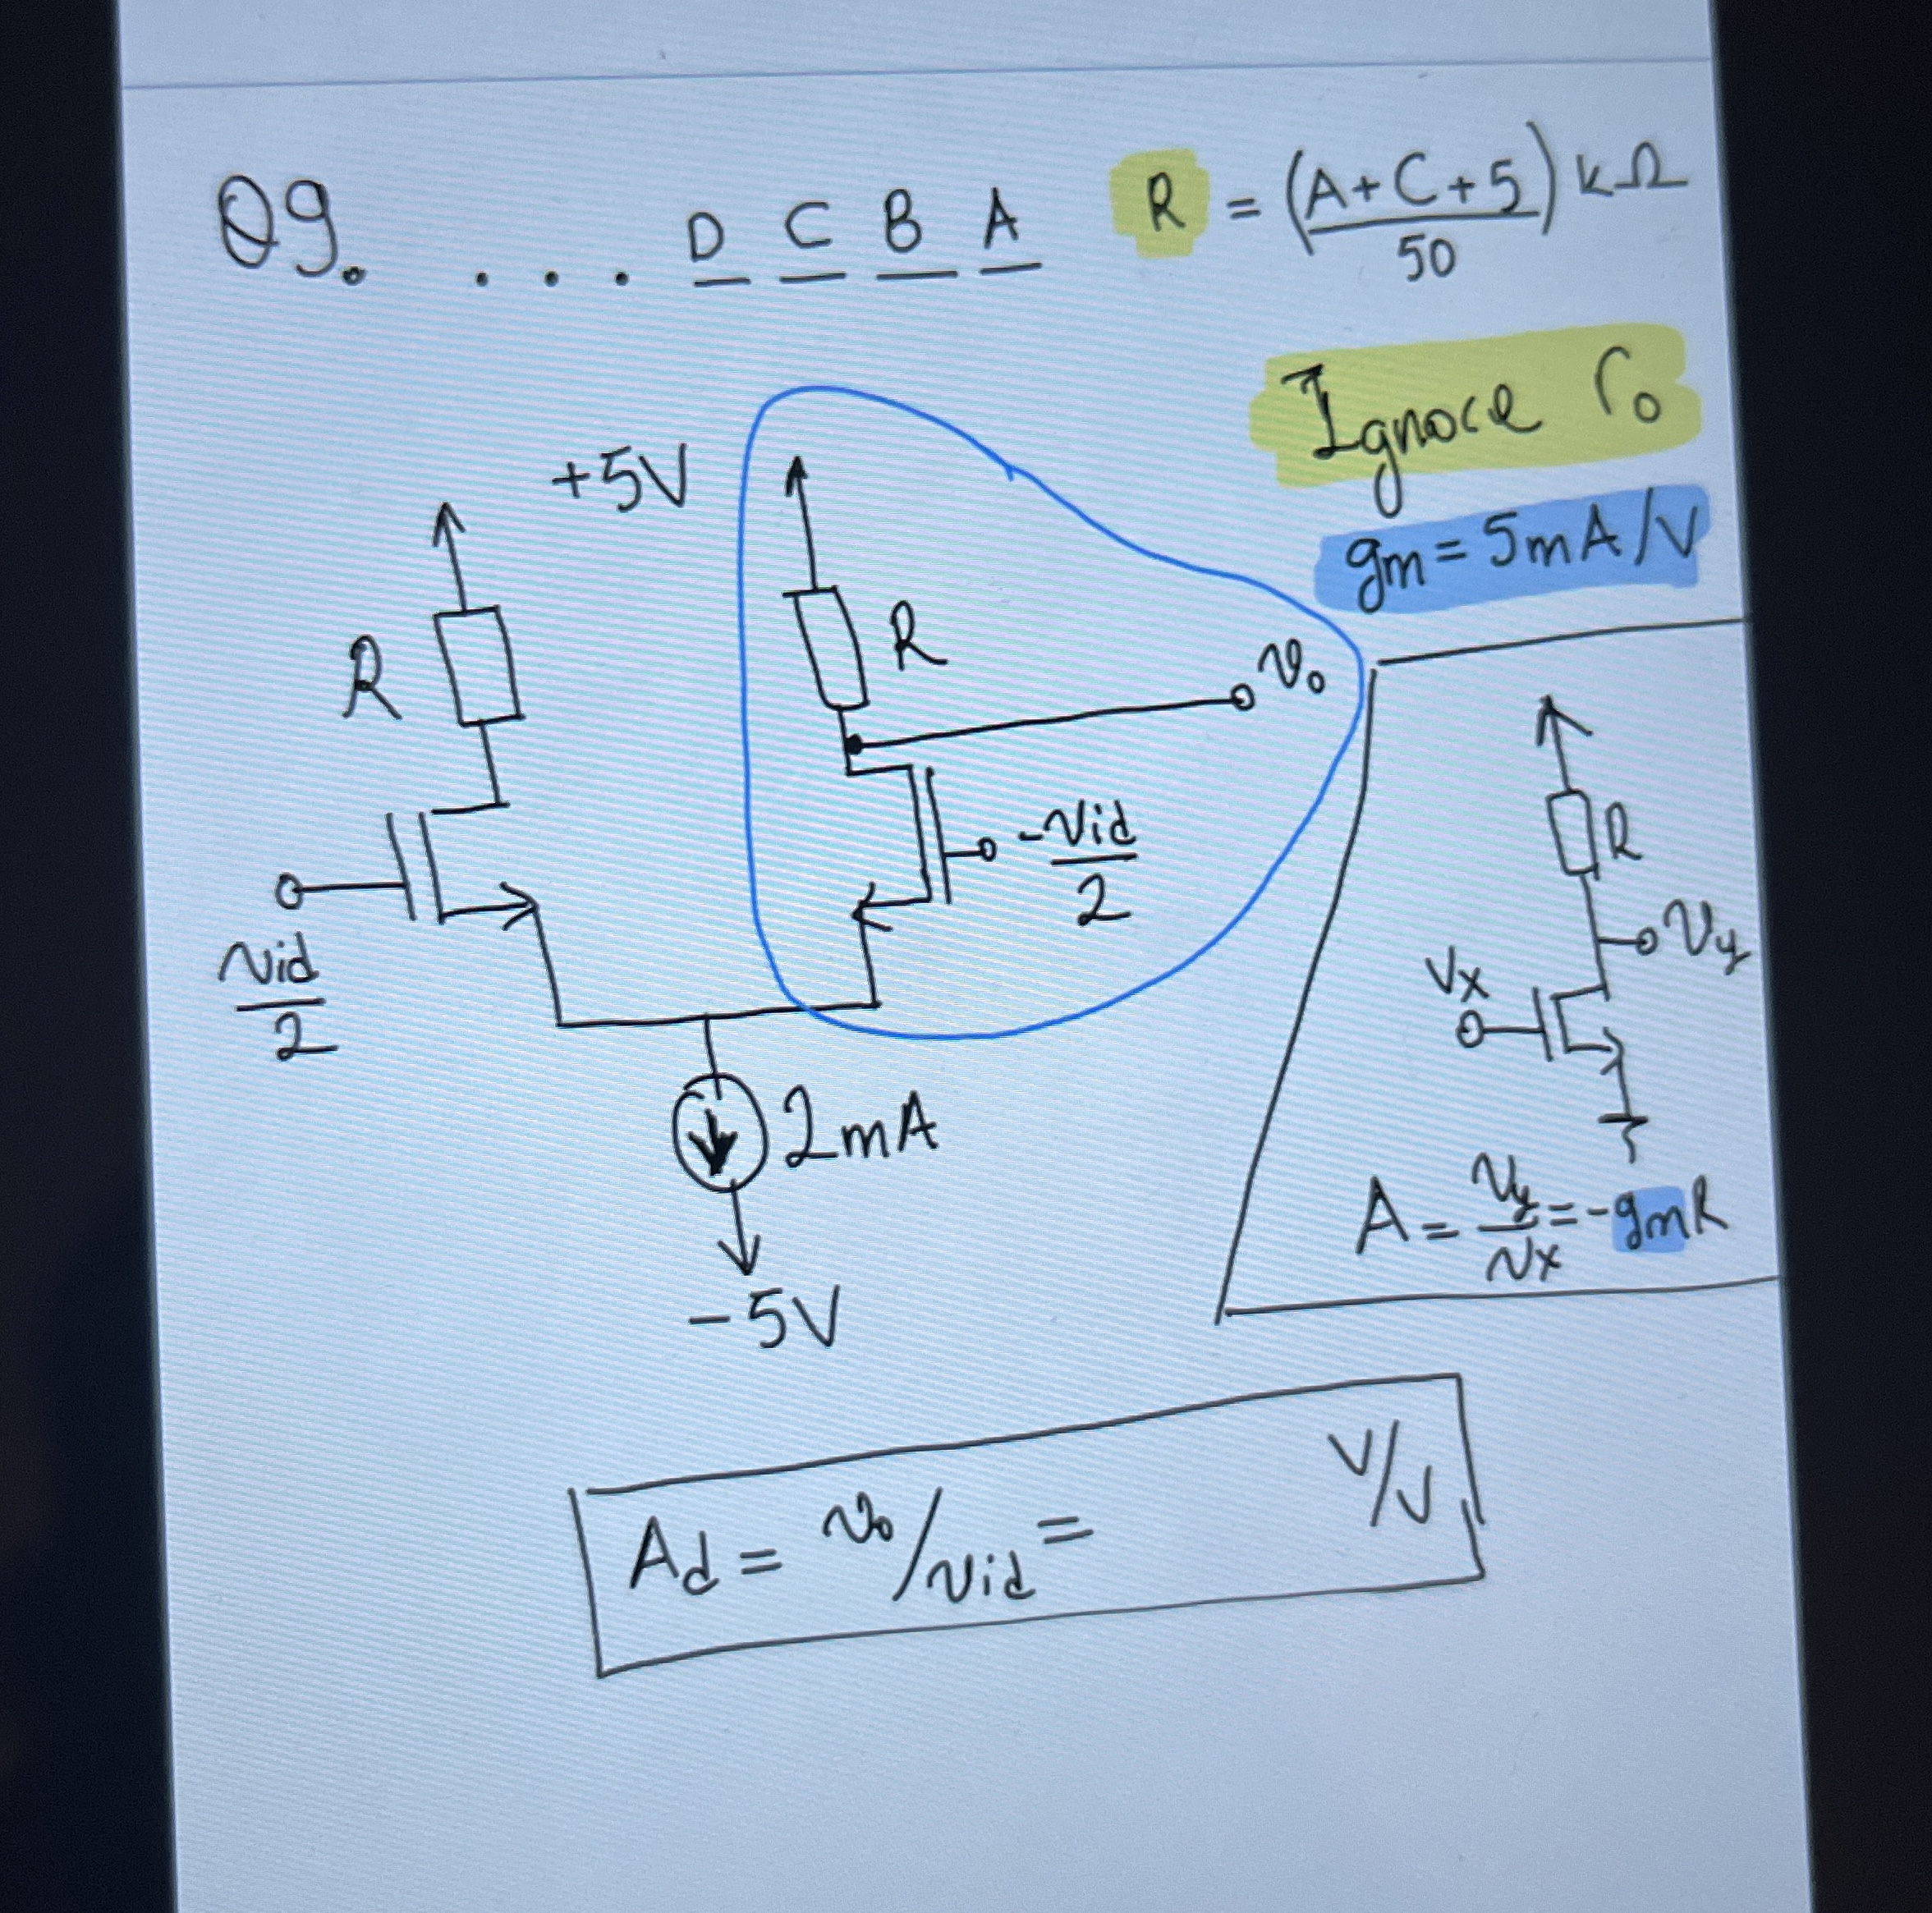 Q9. . . . D C B A R = (A+C+5/50) kΩ
Ignore ro
gm = 5mA/V
+5V
R
R
vo
vid/2
-vid/2
2mA
-5V
R
vy
Vx
A = vy/vx = -gmR
Ad = vo/vid = V/V